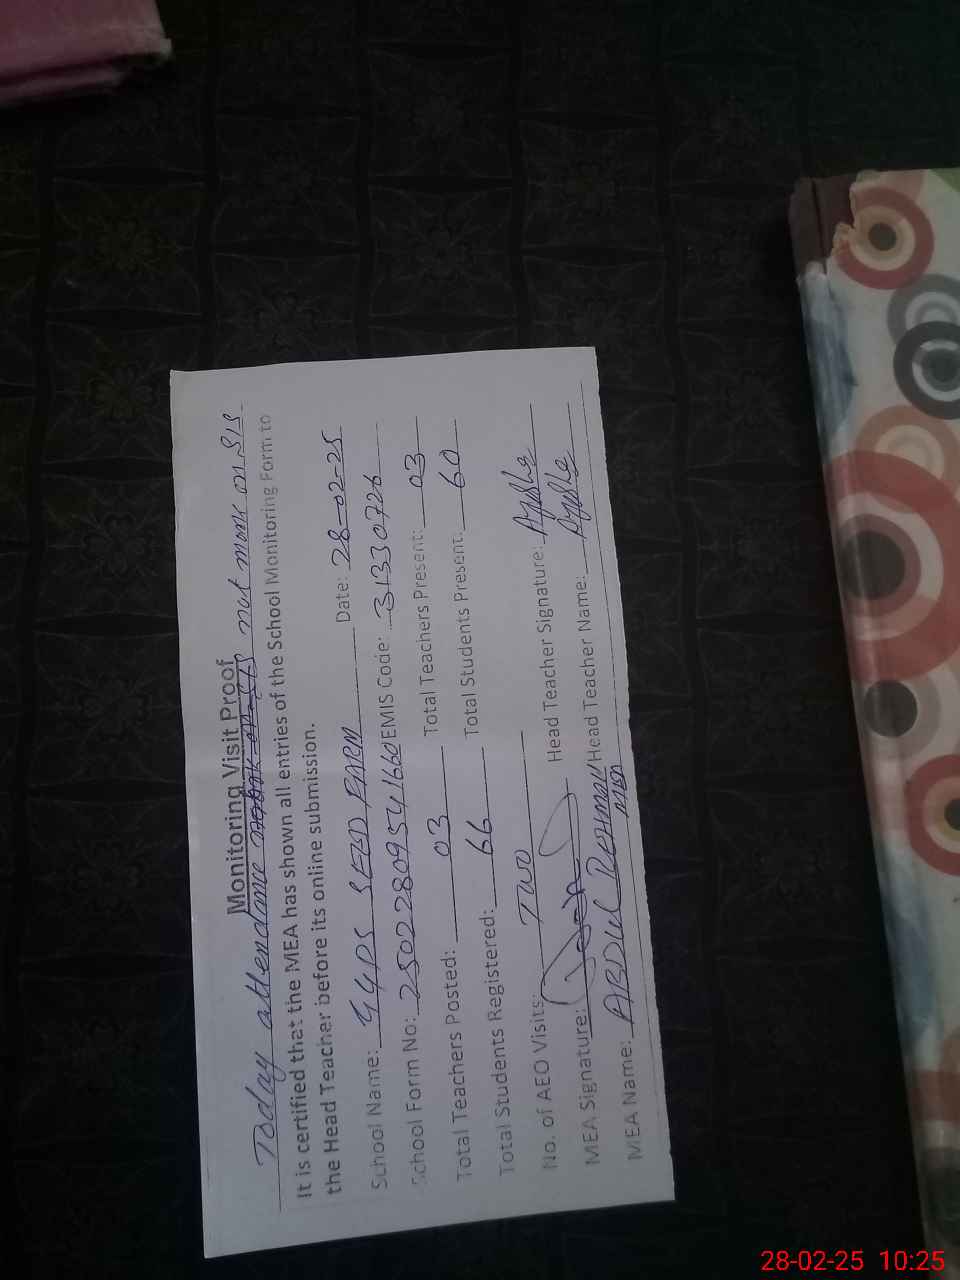 Monitoring Visit Proof
Today attendance not mark on SIS
It is certified that the MEA has shown all entries of the School Monitoring Form to
the Head Teacher before its online submission.
School Name: GGPS SEED FARM Date: 28-02-25
School Form No: 25022809541660 EMIS Code: 31330726
Total Teachers Posted: 03 Total Teachers Present: 03
Total Students Registered: 66 Total Students Present: 60
No. of AEO Visits: TWO Head Teacher Signature: Aysha
MEA Signature: Head Teacher Name: Aysha
MEA Name: ABDUL REHMAN
28-02-25 10:25